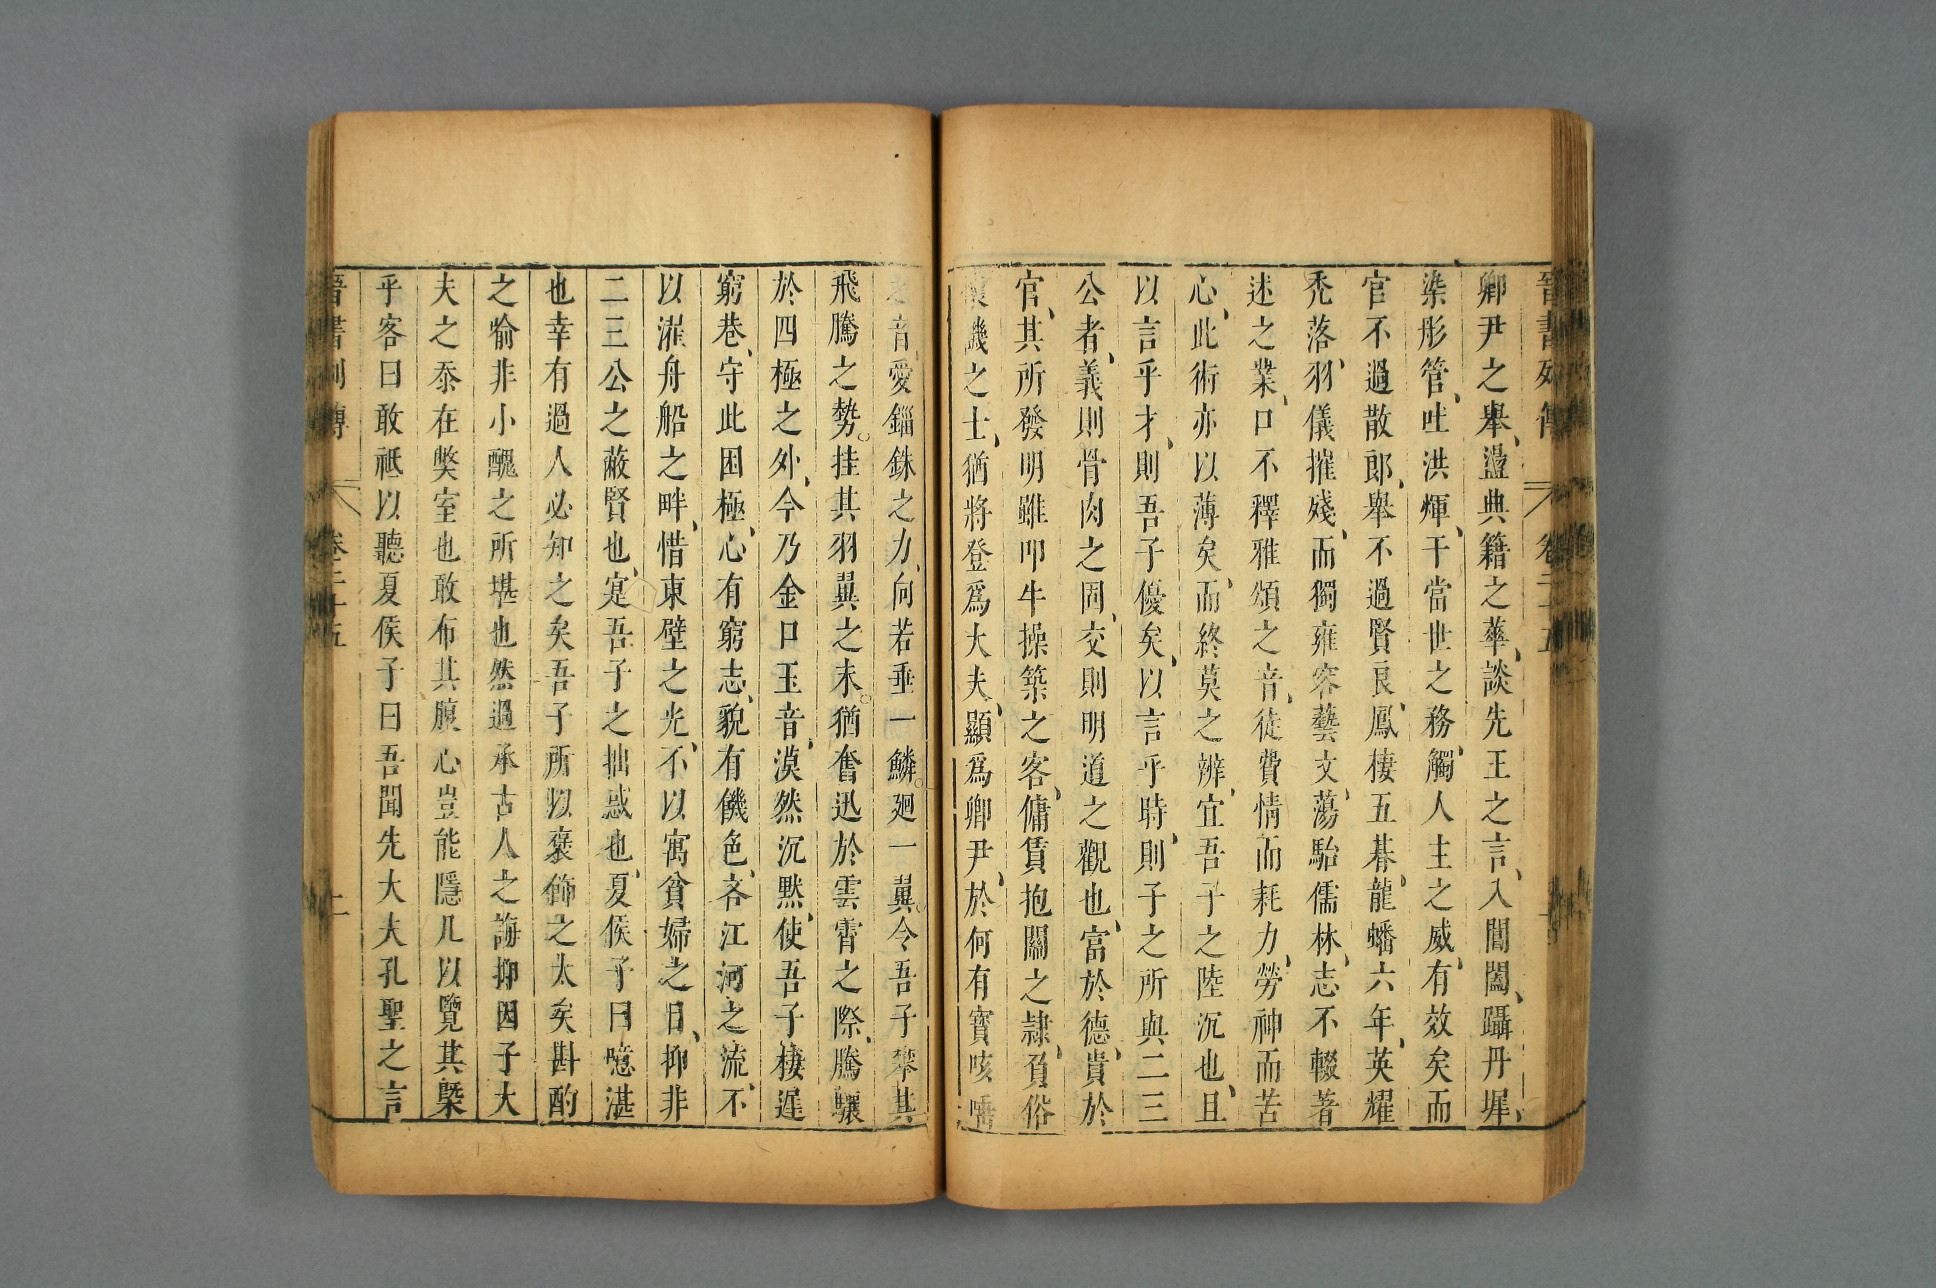 晉書列傳 卷二十五
卿尹之舉、盪典籍之華、談先王之言、入閶闔、躡丹墀、
染彤管、吐洪煇、干當世之務、觸人主之威、有效矣而
官不過散郎、舉不過賢良、鳳棲五朞、龍蟠六年、英耀
禿落、羽儀摧殘、而獨雍容藝文、蕩駘儒林、志不輟著
述之業、口不釋雅頌之音、徒費情而耗力、勞神而苦
心、此術亦以薄矣、而終莫之辨、宜吾子之陸沉也、且
以言乎才、則吾子優矣、以言乎時、則子之所與二三
公者、義則骨肉之固、交則明道之觀也、富於德、貴於
官、其所發明雖叩牛操築之客、傭賃抱關之隷、負俗
懷譏之士、猶將登爲大夫、顯爲卿尹、於何有寳咳唾
之音、愛錙銖之力、向若垂一鱗。廻一翼。令吾子攀其
飛騰之勢。挂其羽翼之末。猶奮迅於雲霄之際、騰驤
於四極之外、今乃金口玉音、漠然沉默、使吾子棲遲
窮巷、守此困極、心有窮志、貌有饑色、吝江河之流、不
以濯舟船之畔、惜東壁之光、不以寓貧婦之目、抑非
二三公之蔽賢也、寔吾子之拙惑也、夏侯子曰噫湛
也幸有過人必知之矣吾子所以褒飾之太矣斟酌
之喻非小醜之所堪也然過承古人之誨抑因子大
夫之忝在獘室也敢布其腹心豈能隱几以覽其槩
乎客曰敢祗以聽夏侯子曰吾聞先大夫孔聖之言
晉書列傳 卷二十五 二